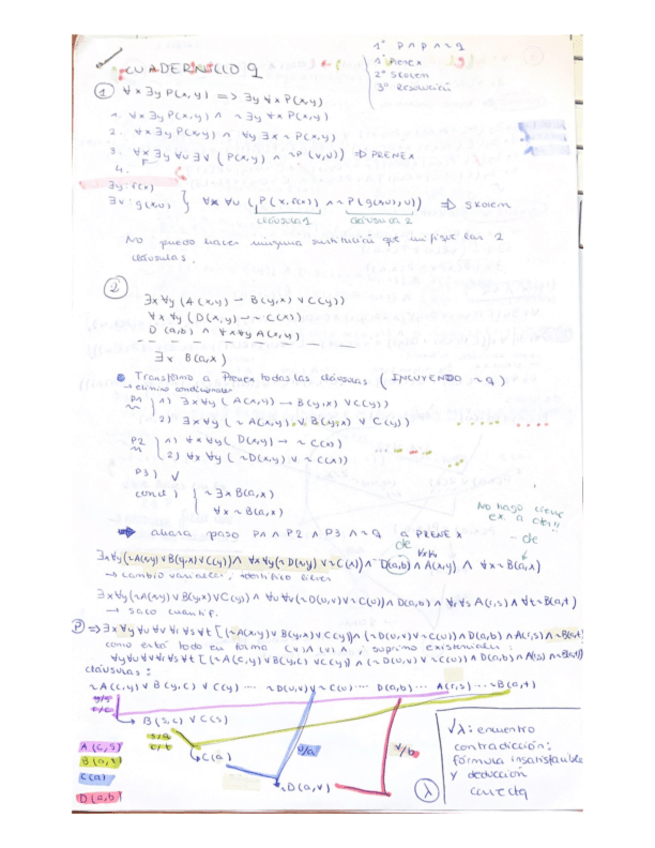 CUADERNILLO 9
1º P ∧ P ∧ ~q
1º Prenex
2º Skolem
3º Resolución
① ∀x∃y P(x,y) => ∃y∀x P(x,y)
1. ∀x∃y P(x,y) ∧ ~∃y∀x P(x,y)
2. ∀x∃y P(x,y) ∧ ∀y∃x ~P(x,y)
3. ∀x∃y∀u∃v (P(x,y) ∧ ~P(v,u)) => PRENEX
4.
∃y: f(x)
∃v: g(x,u) } ∀x ∀u (P(x,f(x)) ∧ ~P(g(x,u),u)) => SKOLEM
cláusula 1 cláusula 2
No puedo hacer ninguna sustitución que unifique las 2
cláusulas.
②
∃x∀y (A(x,y) → B(y,x) ∨ C(y))
∀x ∀y (D(x,y) → ~C(x))
D(a,b) ∧ ∀x∀y A(x,y)
∃x B(a,x)
Transformo a Prenex todas las cláusulas (INCLUYENDO ~q)
→ elimino condicionales
P1 1) ∃x∀y (A(x,y) → B(y,x) ∨ C(y))
2) ∃x∀y (~A(x,y) ∨ B(y,x) ∨ C(y))
P2 1) ∀x∀y (D(x,y) → ~C(x))
2) ∀x ∀y (~D(x,y) ∨ ~C(x))
P3) √
concl) ~∃x B(a,x)
∀x ~B(a,x)
No hago cierre
ex. a ctes!!
ahora paso P1 ∧ P2 ∧ P3 ∧ ~q a PRENEX
cte
cte
∃x∀y(~A(x,y)∨B(y,x)∨C(y)) ∧ ∀x∀y(~D(x,y)∨~C(x)) ∧ D(a,b) ∧ A(x,y) ∧ ∀x~B(a,x)
→ cambio variables, identifico
∃x∀y(~A(x,y)∨B(y,x)∨C(y)) ∧ ∀u∀v(~D(u,v)∨~C(u)) ∧ D(a,b) ∧ ∀r∀s A(r,s) ∧ ∀t~B(a,t)
→ saco cuantif.
=> ∃x∀y∀u∀v∀r∀s∀t [(~A(x,y)∨B(y,x)∨C(y)) ∧ (~D(u,v)∨~C(u)) ∧ D(a,b) ∧ A(r,s) ∧ ~B(a,t)
como está todo en forma ( ∨ ) ∧ ( ∨ ) ∧, suprimo existenciales:
∀y∀u∀v∀r∀s∀t [(~A(c,y)∨B(y,c)∨C(y)) ∧ (~D(u,v)∨~C(u)) ∧ D(a,b) ∧ A(r,s) ∧ ~B(a,t)]
cláusulas:
~A(c,y) ∨ B(y,c) ∨ C(y) ... ~D(u,v) ∨ ~C(u) ... D(a,b) ... A(r,s) ... ~B(a,t)
B(s,c) ∨ C(s)
s/a
c/t
C(a)
u/a
v/b
~D(a,v)
λ
A(c,s)
C(a)
D(a,b)
√λ: encuentro
contradicción:
fórmula insatisfacible
y deducción
correcta